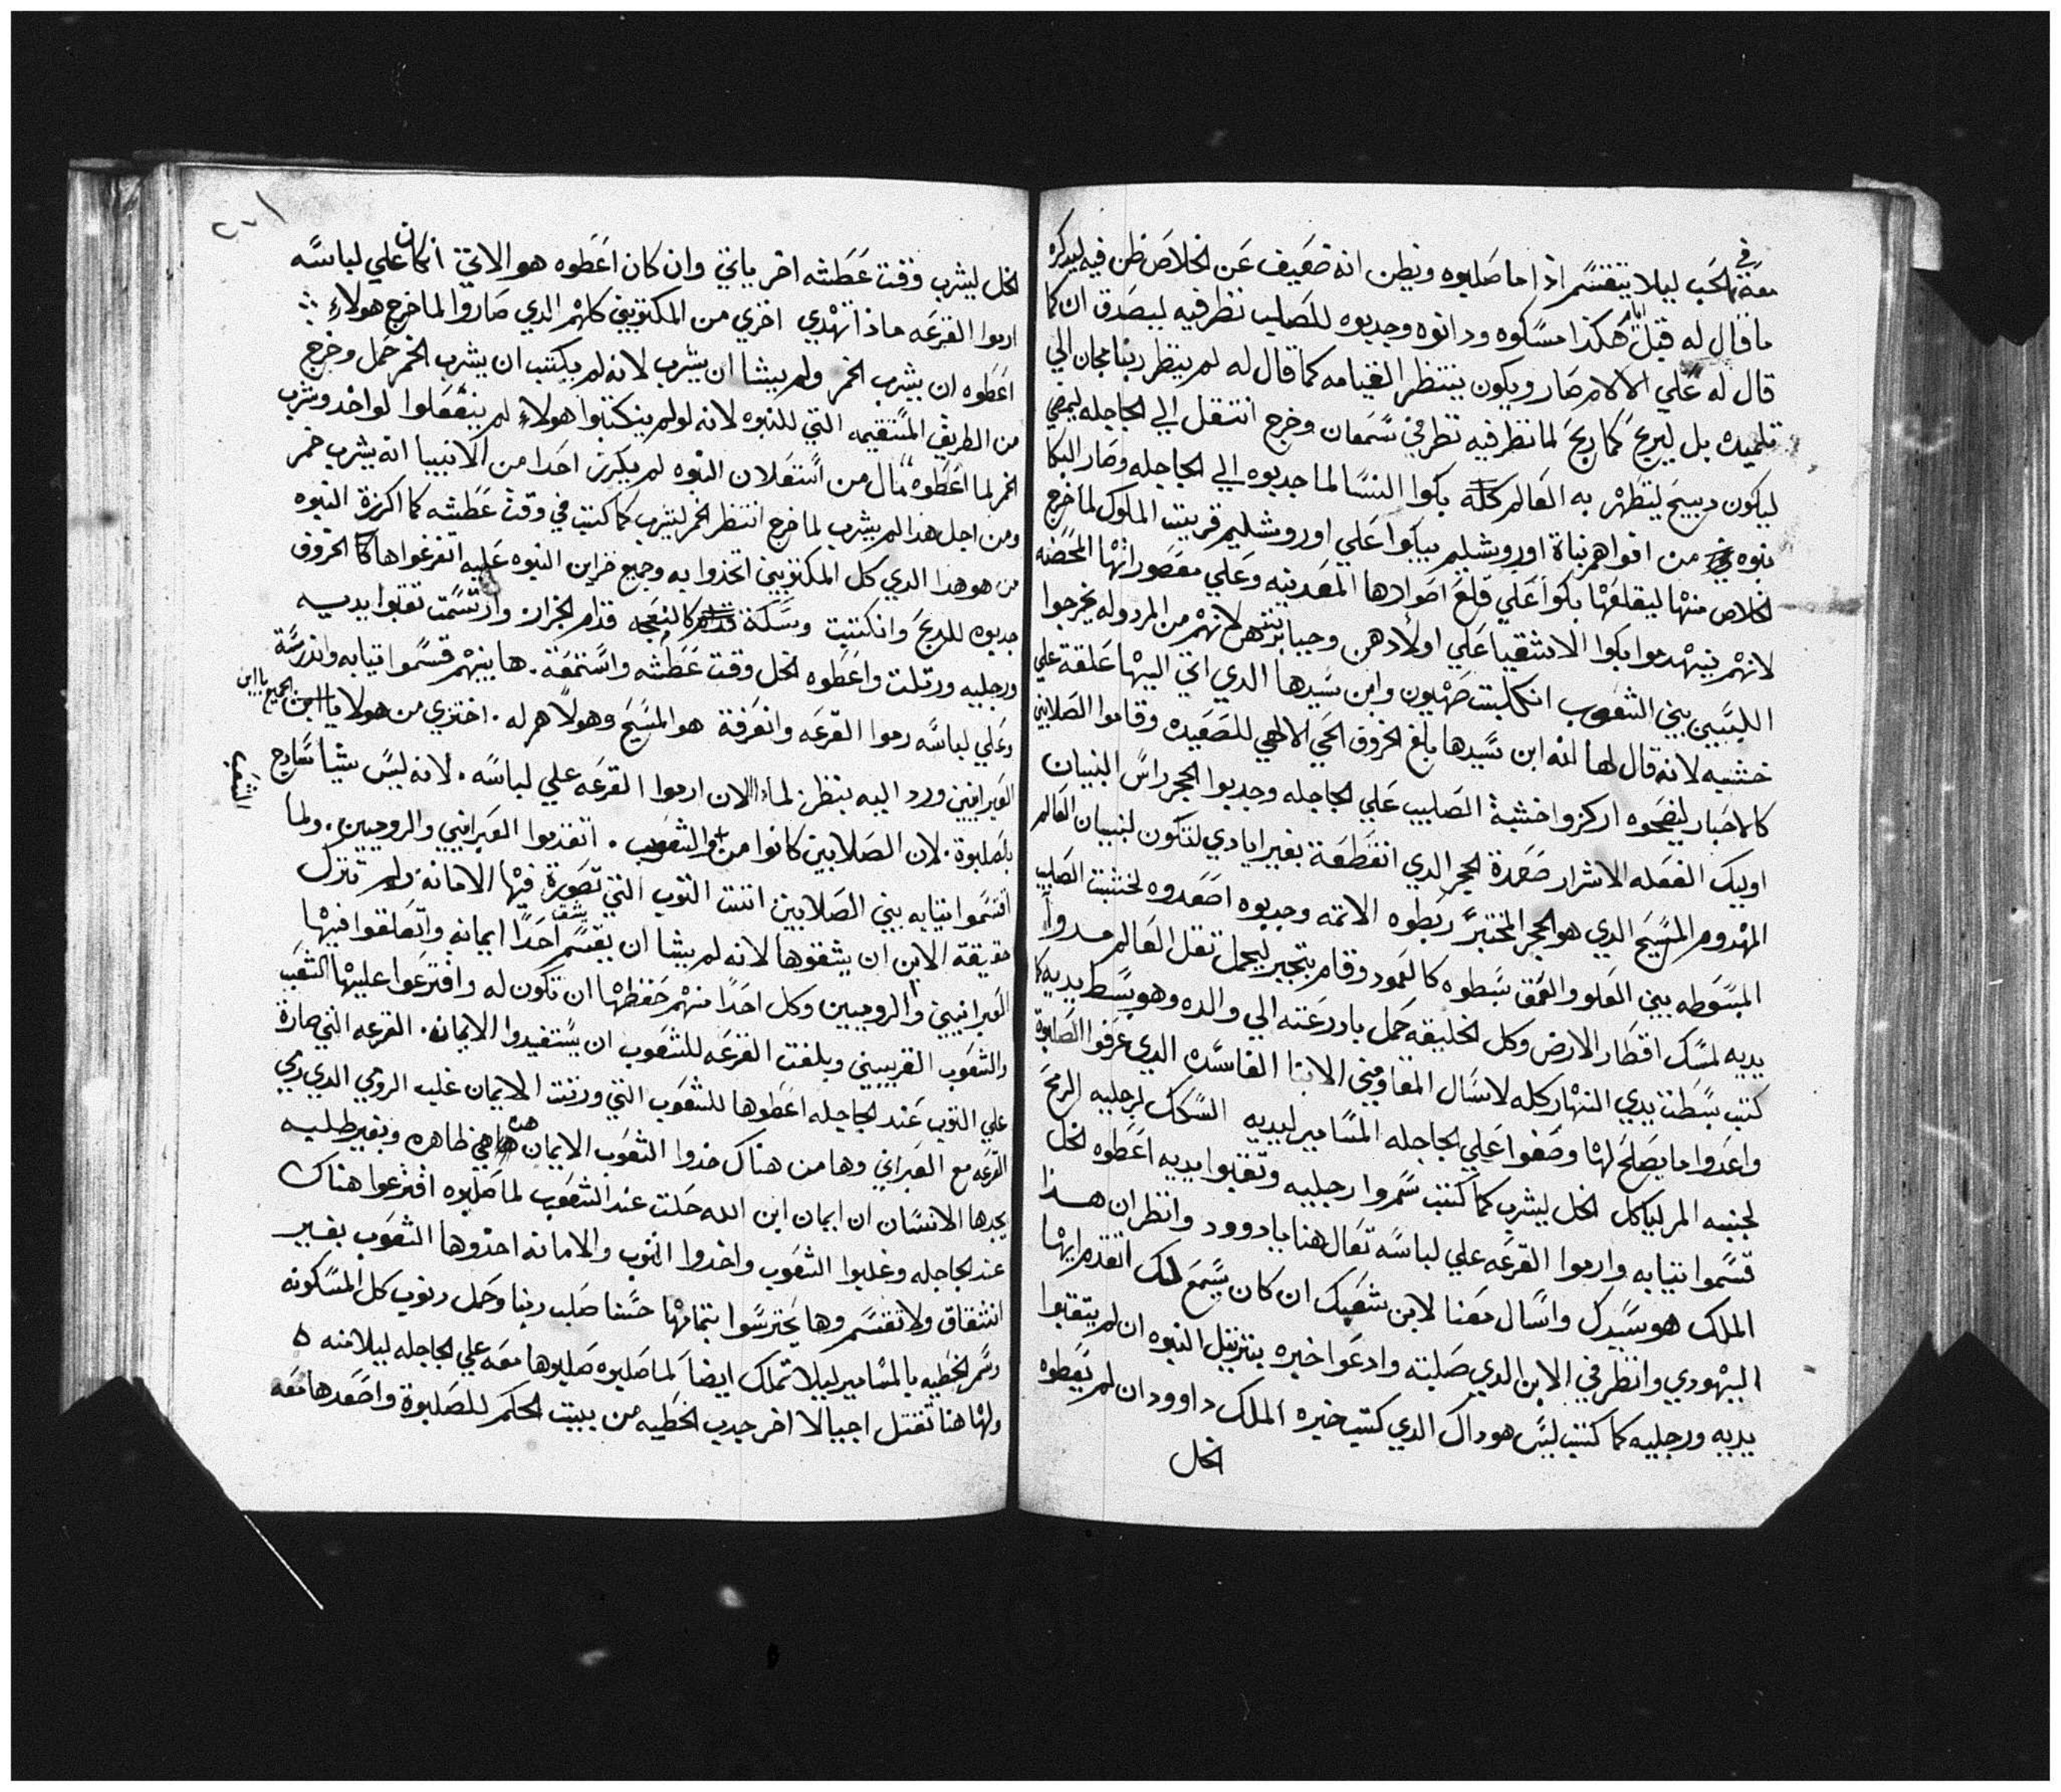 معه في الحب ليلا يتقسم اذا ما صلبوه ويظن انه ضعيف عن الخلاص ظن فيه ليدكره
ما قال له قبل هكذا مسكوه ودانوه وجدبوه للصليب نظر فيه ليصدق ان كما
قال له علي الالام صار ويكون ينتظر القيامه كما قال له لم ينظر ربنا مجان الي
تلميده بل ليربح كما ربح لما نظر فيه نظر في سمعان وخرج انتقل الي الجاجله ليمضي
ليكون دبيح ليتطهر به العالم كله بكوا النسا لما جدبوه الي الجاجله وصار البكا
نبوه من افواههم بناة اوروشليم يبكوا علي اوروشليم قريت الملوك لما خرج
الخلاص منها ليقلعها بكوا علي قلع اصوارها المعدنيه وعلي مقصوراتها المحضنه
لانهم ينهدموا بكوا الاشقيا علي اولادهن وجبابرتهن لانهم من المردوله يخرجوا
الليسبي بين الشعوب انكلبت صهيون وابن سيدها الدي اتي اليها علقة علي
خشبه لانه قال لها انه ابن سيدها بلغ الخروف الحي الالهي للصعيده وقاموا الصلابين
كالاحبار ليضحوه اركزوا خشبة الصليب علي الجاجله وجدبوا الحجر راس البنيان
اوليك الفعله الاشرار صعدة الحجر الدي انقطعة بغير ايادي لتكون لبنيان العالم
المهدوم المسيح الدي هو الحجر المختبر ربطوه الاتمه وجدبوه اصعدوه لخشبت الصليب
المبسوطه بين العلو والعمق بسطوه كالعمود وقام بتجبر ليحمل تقل العالم مدوا
يديه لمسك اقطار الارض وكل الخليقه حمل بادرعته الي والده وهو بسط يديه كما
كتب بسطت يدي النهار كله لاسال المقاومين الابنا الفاسده الدي عرفوا الصلبوة
واعدوا ما يصلح لها وضعوا علي الجاجله المسامير ليديه السكك لرجليه الرمح
لجنبه المر لياكل الخل ليشرب كما كتب سمروا رجليه وتقبوا يديه اعطوه الخل
قسموا تيابه وارموا القرعه علي لباسه تعال هنا يا داوود وانظر ان هدا
الملك هو سيدك واسال معنا لابن شعبك ان كان يسمع لك اتقدم ايها
اليهودي وانظر في الابن الدي صلبته وادعوا خبره بترتيل النبوه ان لم يتقبوا
يديه ورجليه كما كتب ليس هو داك الدي كتب خبره الملك داوود ان لم يعطوه
الخل
الخل ليشرب وقت عطشه اخر ياتي وان كان اعطوه هو الاتي ان كان علي لباسه
ارموا القرعه مادا تهدي اخري من المكتوبين كلهم الدي صاروا لما خرج هولاء
اعطوه ان يشرب الخمر ولم يشا ان يشرب لانه لم يكتب ان يشرب الخمر حمل وخرج
من الطريق المستقيمه التي للنبوه لانه لو لم ينكتبوا هولاء لم ينفعلوا لو اخد وشرب
الخمر لما اعطوه مال من استعلان النبوه لم يكرز احدا من الانبيا انه يشرب خمر
ومن اجل هدا لم يشرب لما خرج انتظر الخمر ليشرب كما كتب في وقت عطشه كما اكرزة النبوه
من هو هدا الدي كل المكتوبين اتخدوا به وجميع خزاين النبوه عليه اتفرغوا ها كالخروف
جدبوه للدبح وانكتبت وسكة كالنعجه قدام الجزاز وارتسمت تقبوا يديه
ورجليه ورتلت واعطوه الخل وقت عطشه واستمعة ها بينهم قسموا تيابه واندرسة
وعلي لباسه رموا القرعه وانعرفة هو المسيح وهولا هم له اختزي من هولا يا ابن الجميع يا ابن
الشعب
العبرانيين ورد اليه بنظر لما الان ارموا القرعه علي لباسه لانه ليس شيا سادج
بالصلبوة لان الصلابين كانوا من الشعوب اتفدوا العبراني والروميين ولما
اقسموا تيابه بين الصلابين اتت التوب التي تصورة فيها الامانه ولم تترك
حقيقة الابن ان يشقوها لانه لم يشا ان يقسم يشق احدا ايمانه واتعلقوا فيها
العبرانيين والروميين وكل احدا منهم حفظها ان تكون له واقترعوا عليها الشعب
والشعوب القريبين وبلغت القرعه للشعوب ان يستفيدوا الايمان القرعه التي صارة
علي التوب عند الجاجله اعطوها للشعوب التي ورتت الايمان غلب الرومي الدي رمي
القرعه مع العبراني وها من هناك خدوا الشعوب الايمان هده هي ظاهره وبغير طلبه
يجدها الانسان ان ايمان ابن الله حلت عند الشعوب لما صلبوه اقترعوا هناك
عند الجاجله وغلبوا الشعوب واخدوا التوب والامانه اخدوها الشعوب بغير
انشقاق ولا تقسم وها يحترسوا بتمانها حسنا صلب ربنا وحمل دنوب كل المسكونه
وسمر الخطيه بالمسامير ليلا تملك ايضا لما صلبوه صلبوها معه علي الجاجله ليلا منه
ولها هنا تقتل اجيالا اخر جدب الخطيه من بيت الحكم للصلبوة واصعدها معه